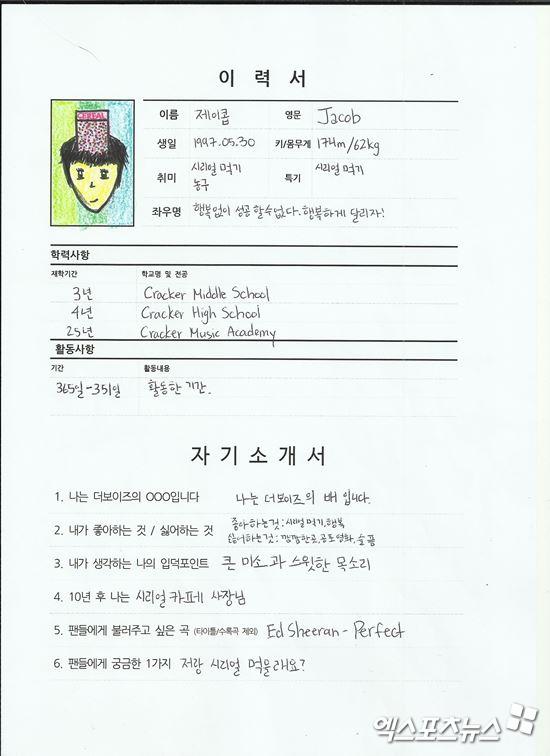 이 력 서
CEREAL
이름 제이콥 영문 Jacob
생일 1997.05.30 키/몸무게 174m/62kg
취미 시리얼 먹기 특기 시리얼 먹기
농구
좌우명 행복없이 성공 할수없다. 행복하게 달리자!
학력사항
재학기간 학교명 및 전공
3년 Cracker Middle School
4년 Cracker High School
25년 Cracker Music Academy
활동사항
기간 활동내용
365일-351일 활동한 기간.
자 기 소 개 서
1. 나는 더보이즈의 OOO입니다 나는 더보이즈의 배 입니다.
2. 내가 좋아하는 것 / 싫어하는 것 좋아하는것: 시리얼 먹기, 행복
싫어하는것: 깜깜한곳, 공포영화, 슬픔
3. 내가 생각하는 나의 입덕포인트 큰 미소과 스윗한 목소리
4. 10년 후 나는 시리얼 카페 사장님
5. 팬들에게 불러주고 싶은 곡 (타이틀/수록곡 제외) Ed Sheeran - Perfect
6. 팬들에게 궁금한 1가지 저랑 시리얼 먹을래요?
엑스포츠뉴스